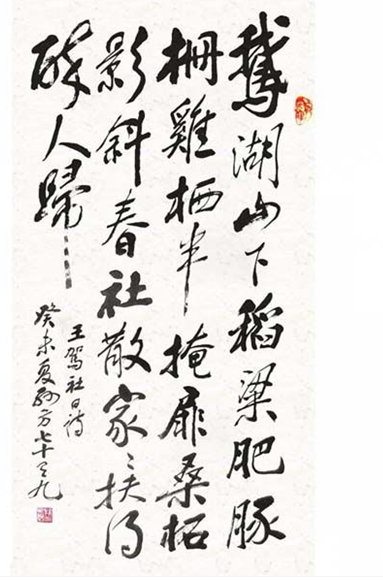 鵝湖山下稻梁肥豚
柵雞栖半掩扉桑柘
影斜春社散家〻扶得
醉人歸
王駕社日詩
癸未夏方七十九